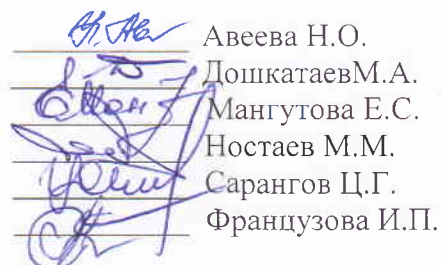 Авеева Н.О.
ДошкатаевМ.А.
Мангутова Е.С.
Ностаев М.М.
Сарангов Ц.Г.
Французова И.П.